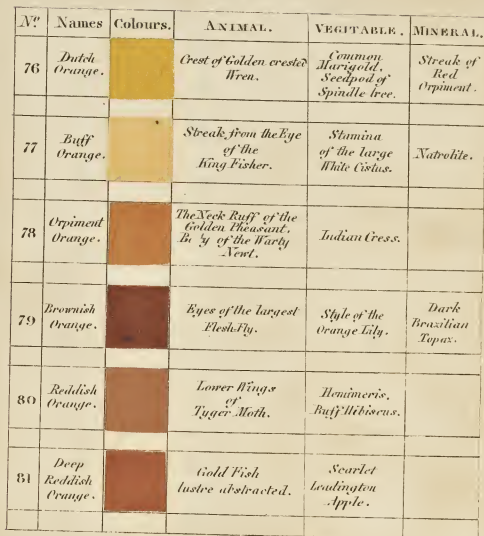 No. Names Colours. ANIMAL. VEGITABLE. MINERAL.
76
Dutch
Orange.
Crest of Golden crested
Wren.
Common
Marigold.
Seedpod of
Spindle tree.
Streak of
Red
Orpiment.
77
Buff
Orange.
Streak from the Eye
of the
King Fisher.
Stamina
of the large
White Cistus.
Natrolite.
78
Orpiment
Orange.
The Neck Ruff of the
Golden Pheasant.
of the Warty
Newt.
Indian Cress.
79
Brownish
Orange.
Eyes of the largest
Flesh Fly.
Style of the
Orange Lily.
Dark
Brazilian
Topaz.
80
Reddish
Orange.
Lower Wings
of
Tyger Moth.
Hemimeris.
Buff Hibiscus.
81
Deep
Reddish
Orange.
Gold Fish
lustre abstracted.
Scarlet
Leadington
Apple.